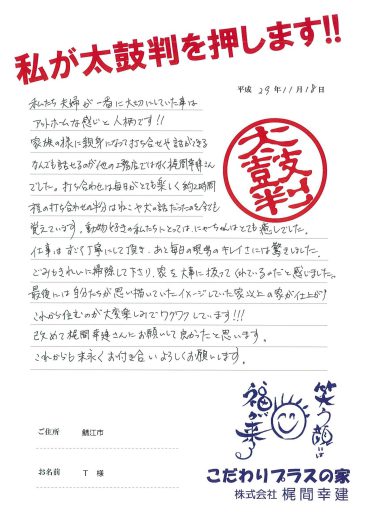 私が太鼓判を押します!!
平成 29年11月18日
私たち夫婦が一番に大切にしていた事は
アットホームな感じと人柄です!!
家族の様に親身になって打ち合せや話ができる
なんでも話せるのが他の工務店ではなく梶間幸建さん
でした。打ち合わせは毎回がとても楽しく約2時間
程の打ち合わせの半分はねこや犬の話だったのを今でも
覚えています。動物好きの私たちにとっては、にゃーちゃんはとても癒しでした。
仕事はすごく丁寧にして頂き、あと毎日の現場のキレイさには驚きました。
ごみもきれいに掃除して下さり、家を大事に扱ってくれているのだと感じました。
最後には自分たちが思い描いていたイメージしていた家以上の家が仕上がり
これから住むのが大変楽しみでワクワクしています!!!
改めて梶間幸建さんにお願いして良かったと思います。
これからも末永くお付き合いよろしくお願いします。
太鼓判!
笑う顔に
福が来る
ご住所 鯖江市
お名前 T 様
こだわりプラスの家
株式会社 梶間幸建